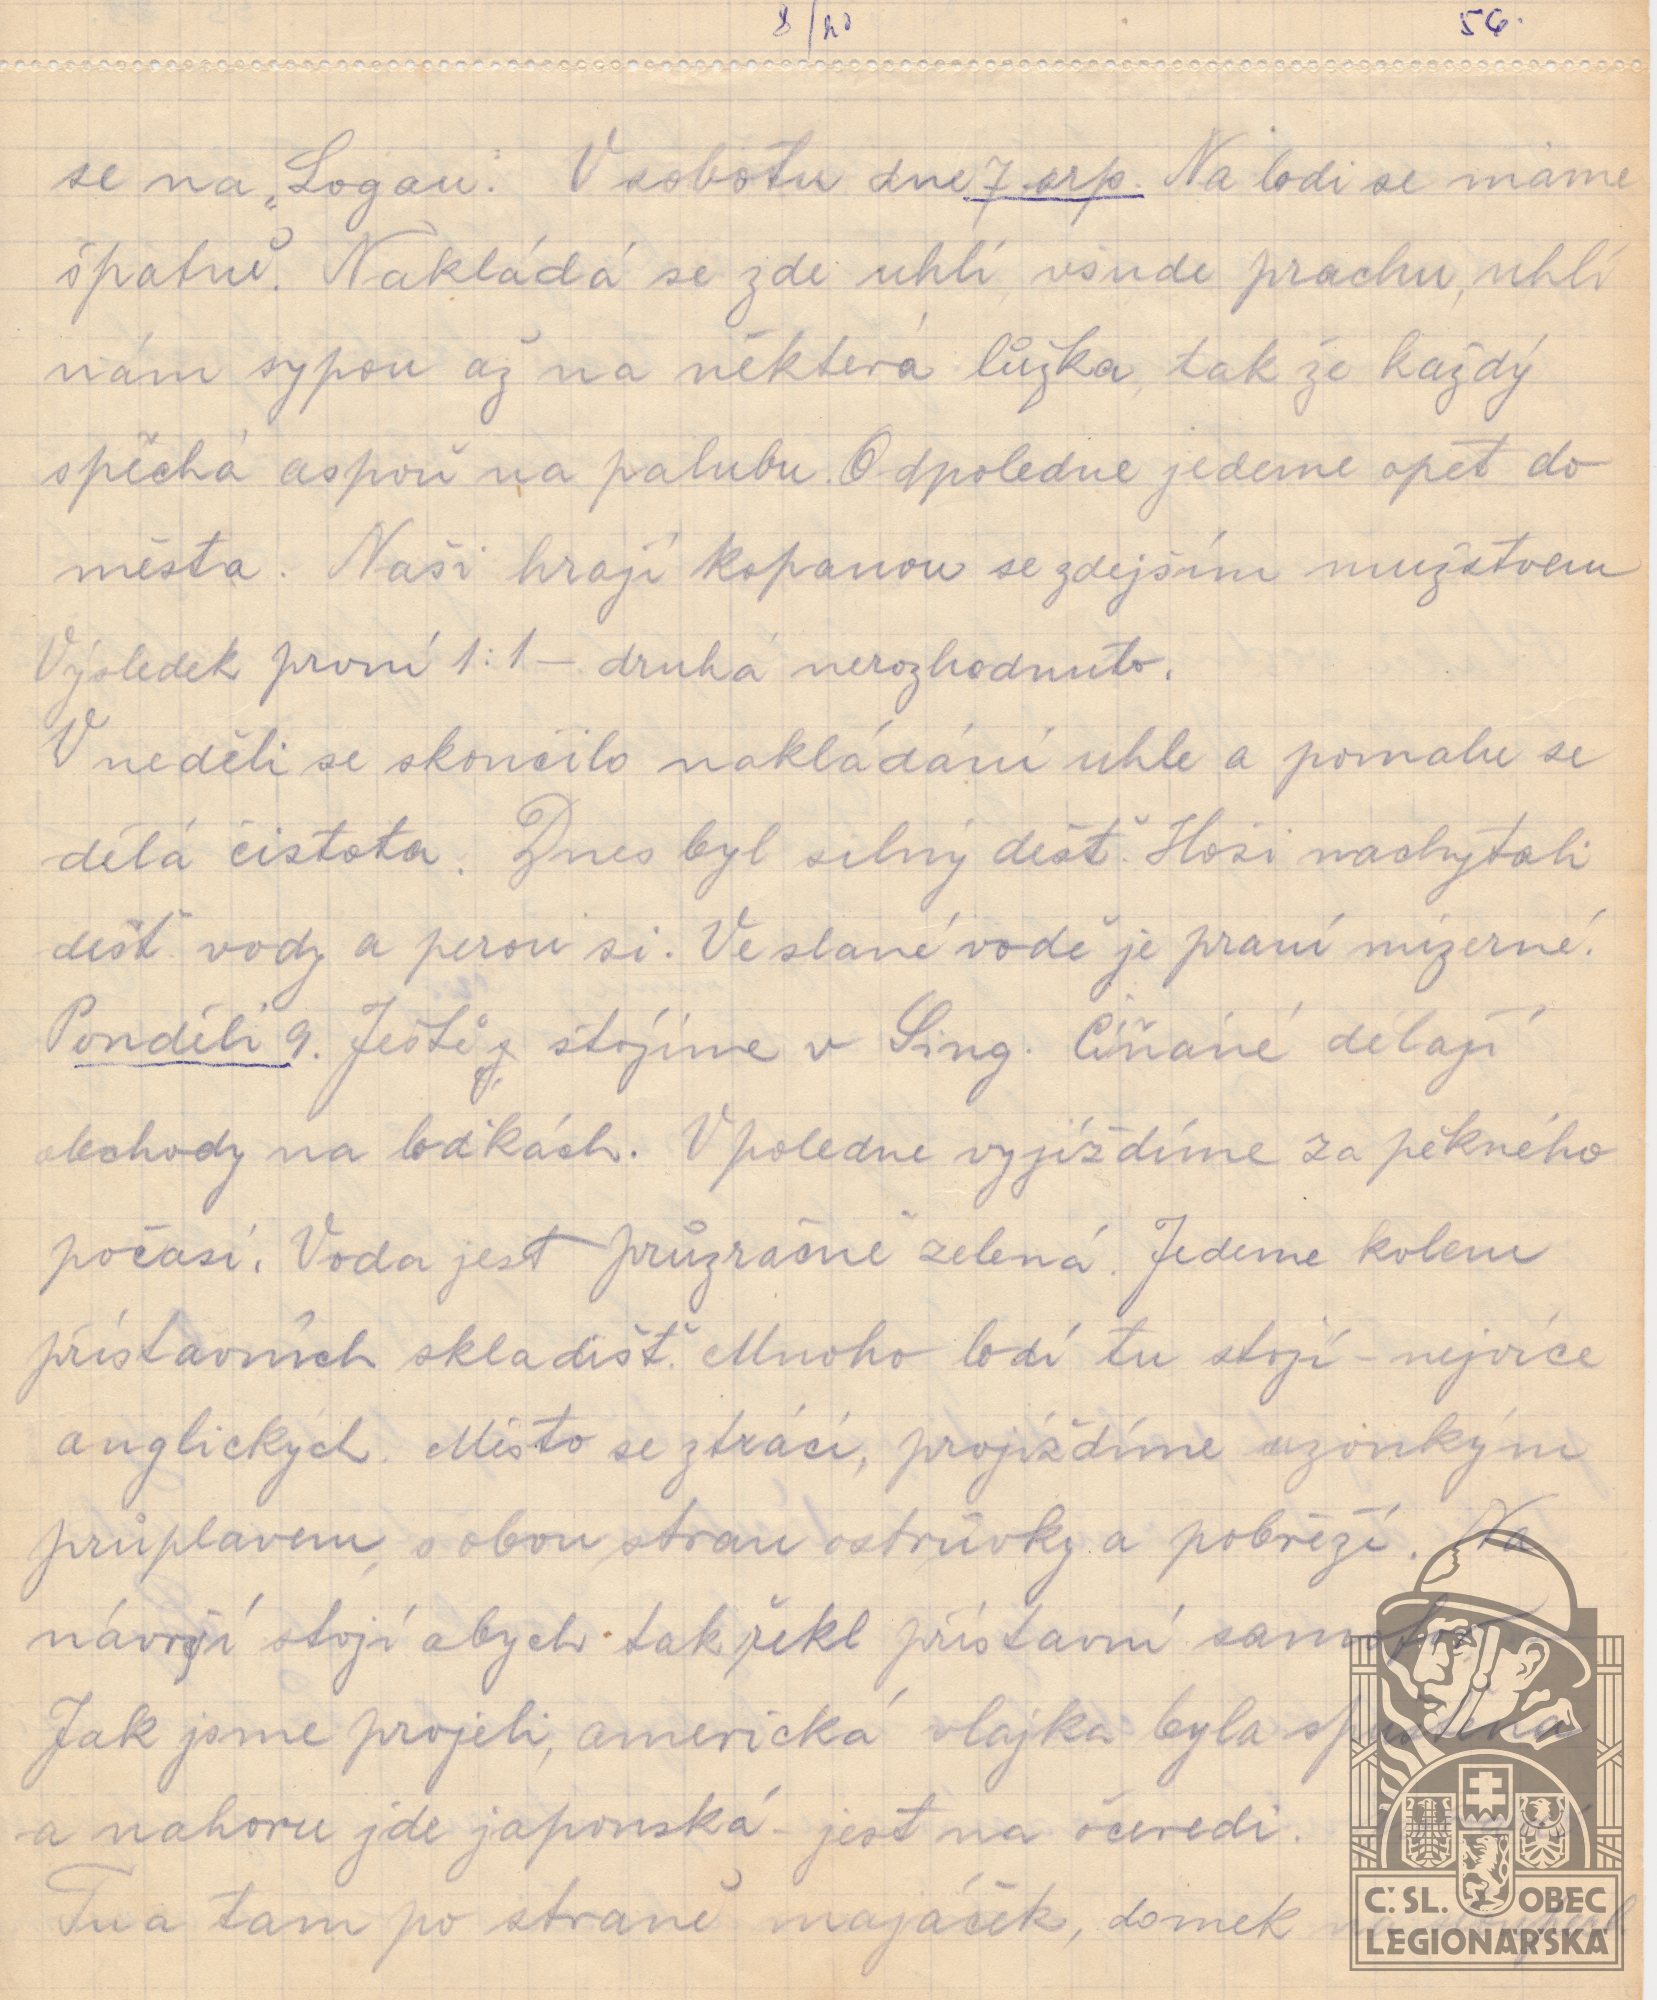 8/20 56.
se na „Logau". V sobotu dne 7. srp. Na lodi se máme
špatně. Nakládá se zde uhlí, všude prachu, uhlí
nám sypou až na některá lůžka, tak že každý
spěchá aspoň na palubu. Odpoledne jedeme opět do
města. Naši hrají kopanou se zdejším mužstvem
Výsledek první 1:1 – druhá nerozhodnuto.
V neděli se skončilo nakládání uhle a pomalu se
dělá čistota. Dnes byl silný déšť. Hoši nachytali
dešť. vody a perou si. Ve slané vodě je praní mizerné.
Pondělí 9. Ještě stojíme v Sing. Číňáné dělají
obchody na loďkách. V poledne vyjíždíme za pěkného
počasí. Voda jest průzračně zelená. Jedeme kolem
přístavních skladišť. Mnoho lodí tu stojí – nejvíce
anglických. Město se ztrácí, projíždíme uzounkým
průplavem, s obou stran ostrůvky a pobřeží. Na
návrší stojí abych tak řekl přístavní samota.
Jak jsme projeli, americká vlajka byla spuštěna
a nahoru jde japonská – jest na očeredi.
Tu a tam po straně majáček, domek na
Č. SL. OBEC
LEGIONÁŘSKÁ